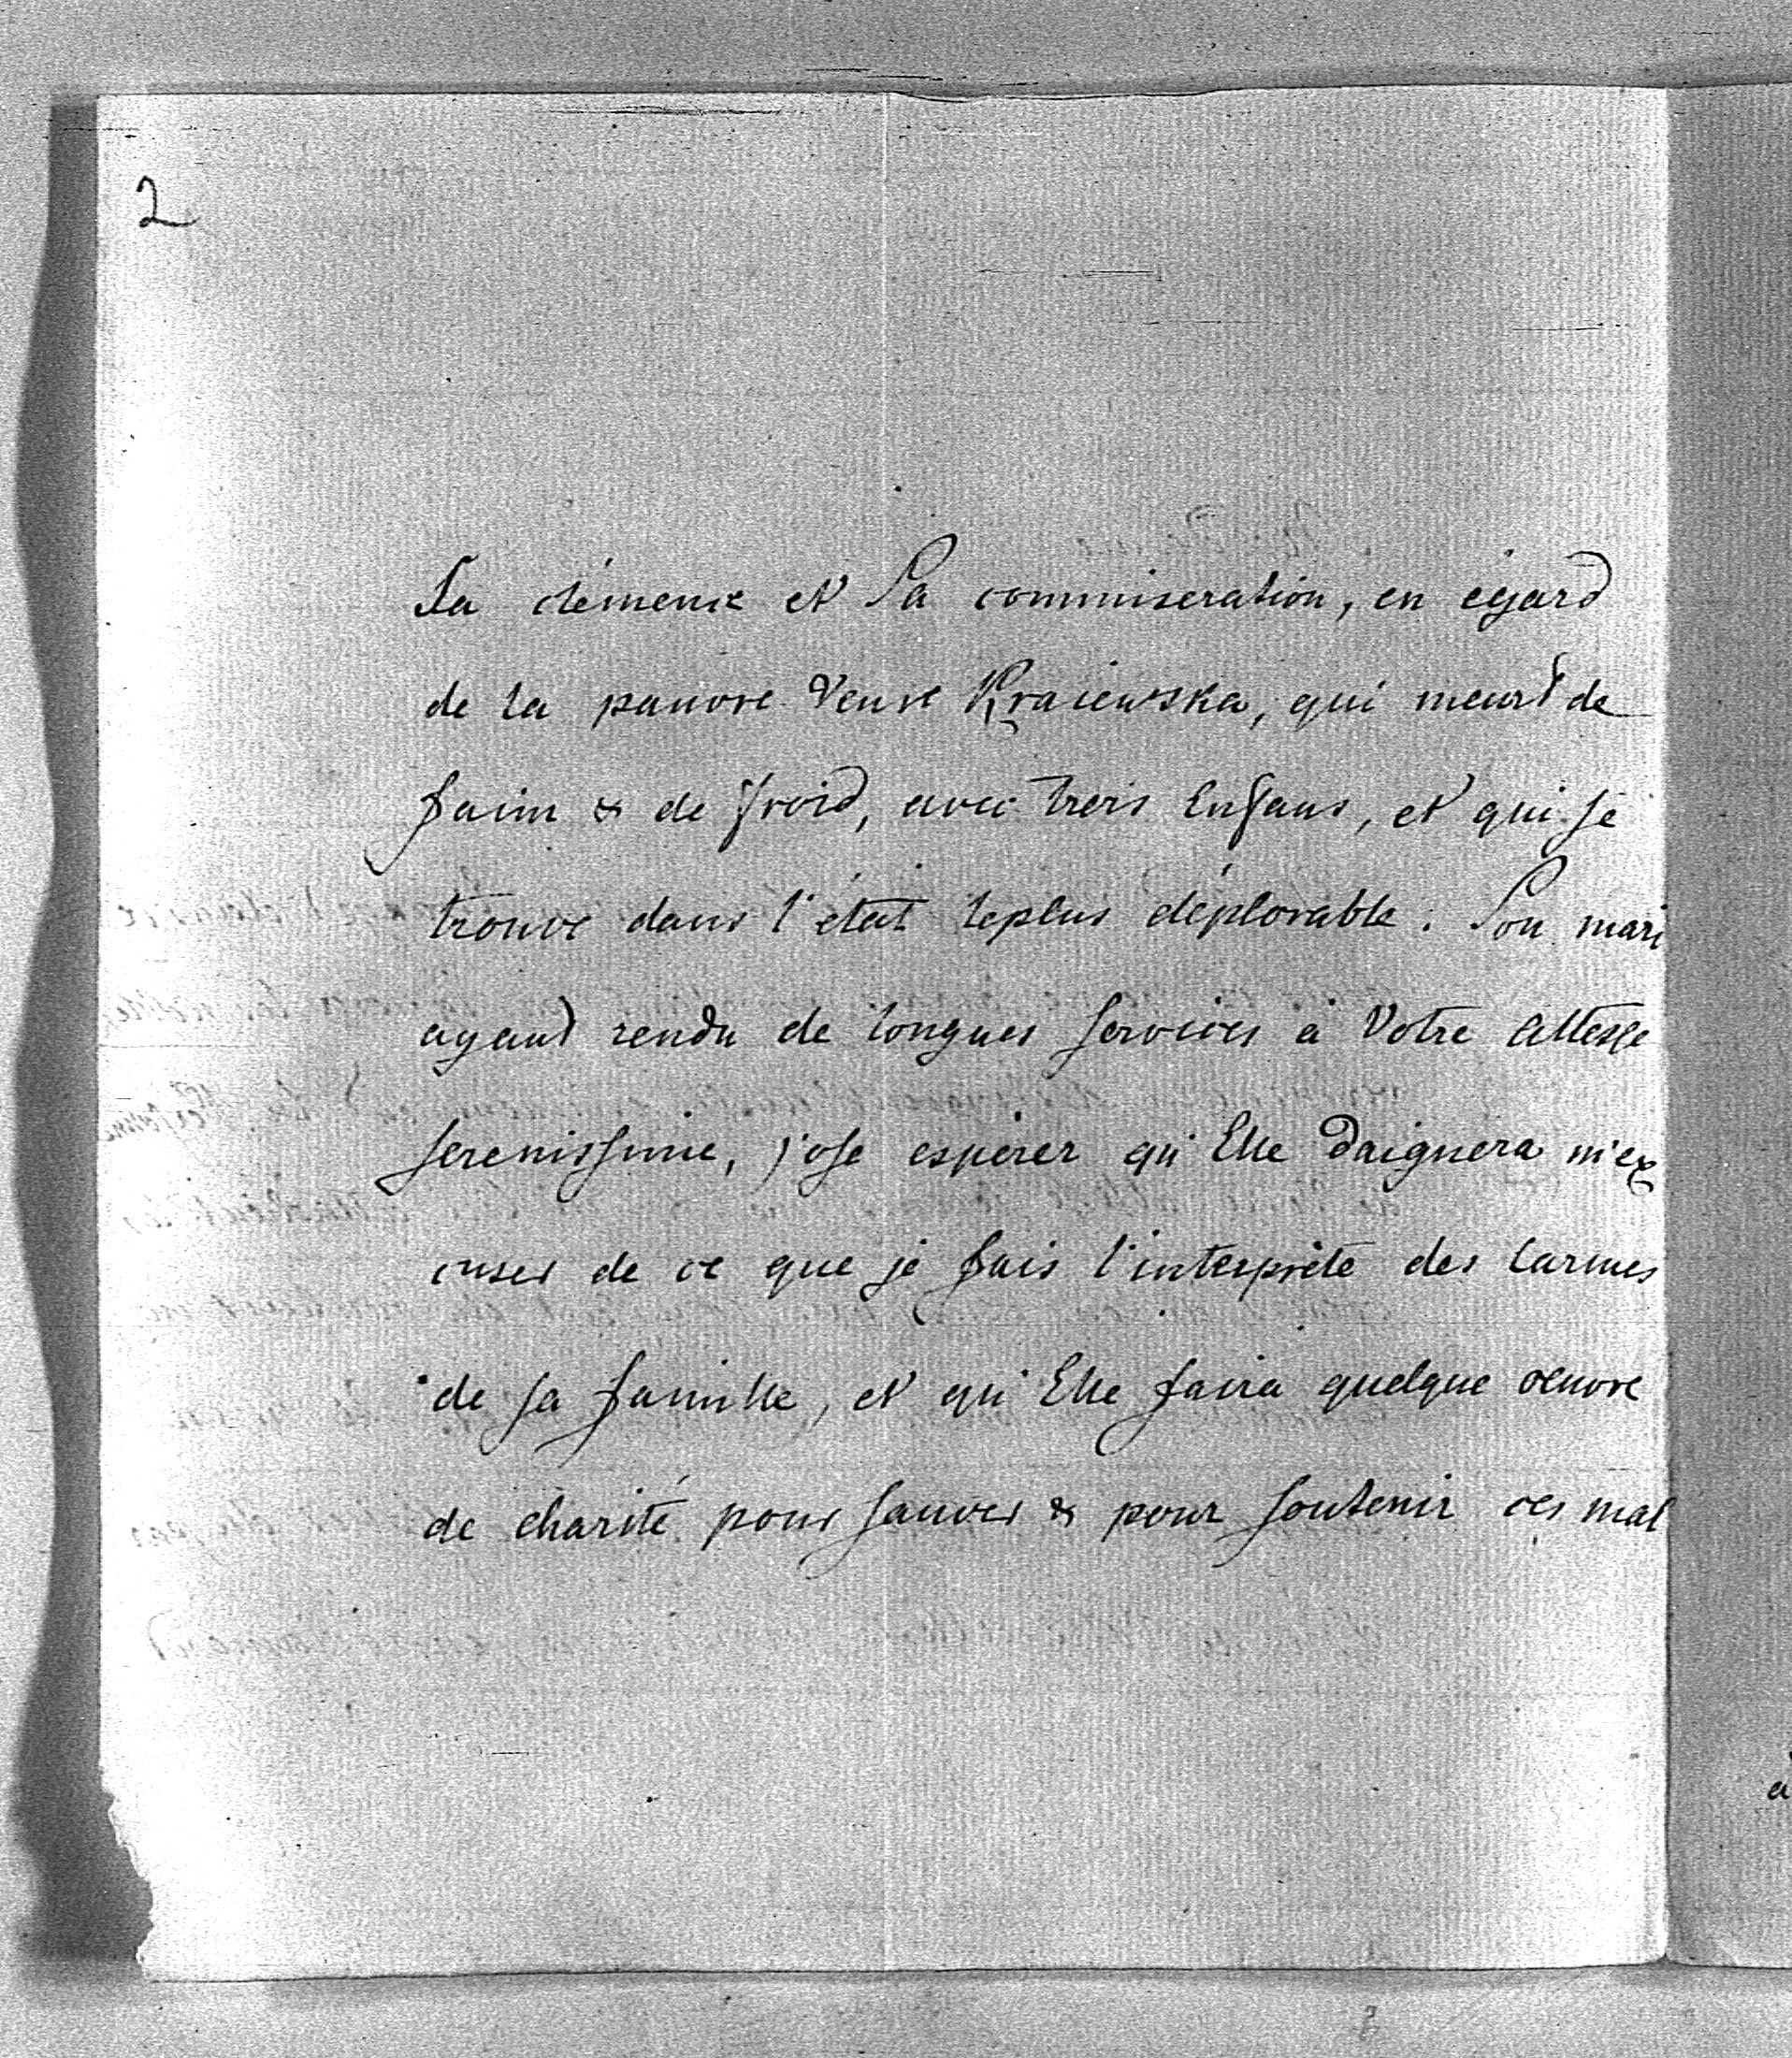 2
Sa clémence et Sa commiseration, en égard
de la pauvre Veuve Kraiewska, qui meurt de
faim & de froid, avec trois Enfans, et qui se
trouve dans l'état leplus déplorable. Son mari
ayant rendu de longues services à Votre Altesse
serenissime, j'ose espérer qu'Elle daignera m'ex
cuser de ce que je fais l'interprète des larmes
de sa famille, et qu'Elle faira quelque oeuvre
de charité pour sauver & pour soutenir ces mal